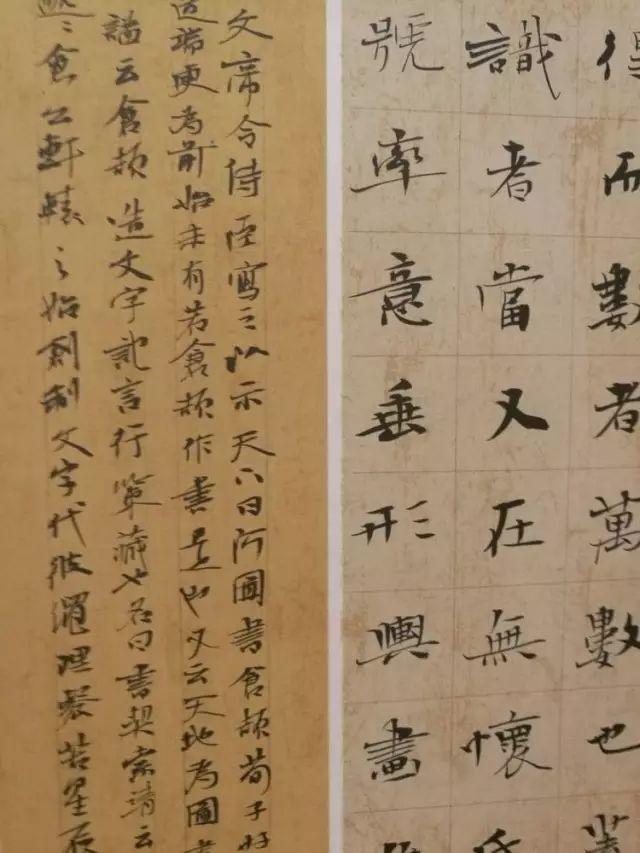 而數者萬數也
識者當又在無懷
號率意垂形興畫
文帝令侍臣寫之以示天下曰河圖書倉頡荀子好
更為前始未有若倉頡作書是也又云天地為圖
云倉頡造文字記言行策藏也名曰書契索靖云
倉公軒轅之始創制文字代彼繩理粲若星辰